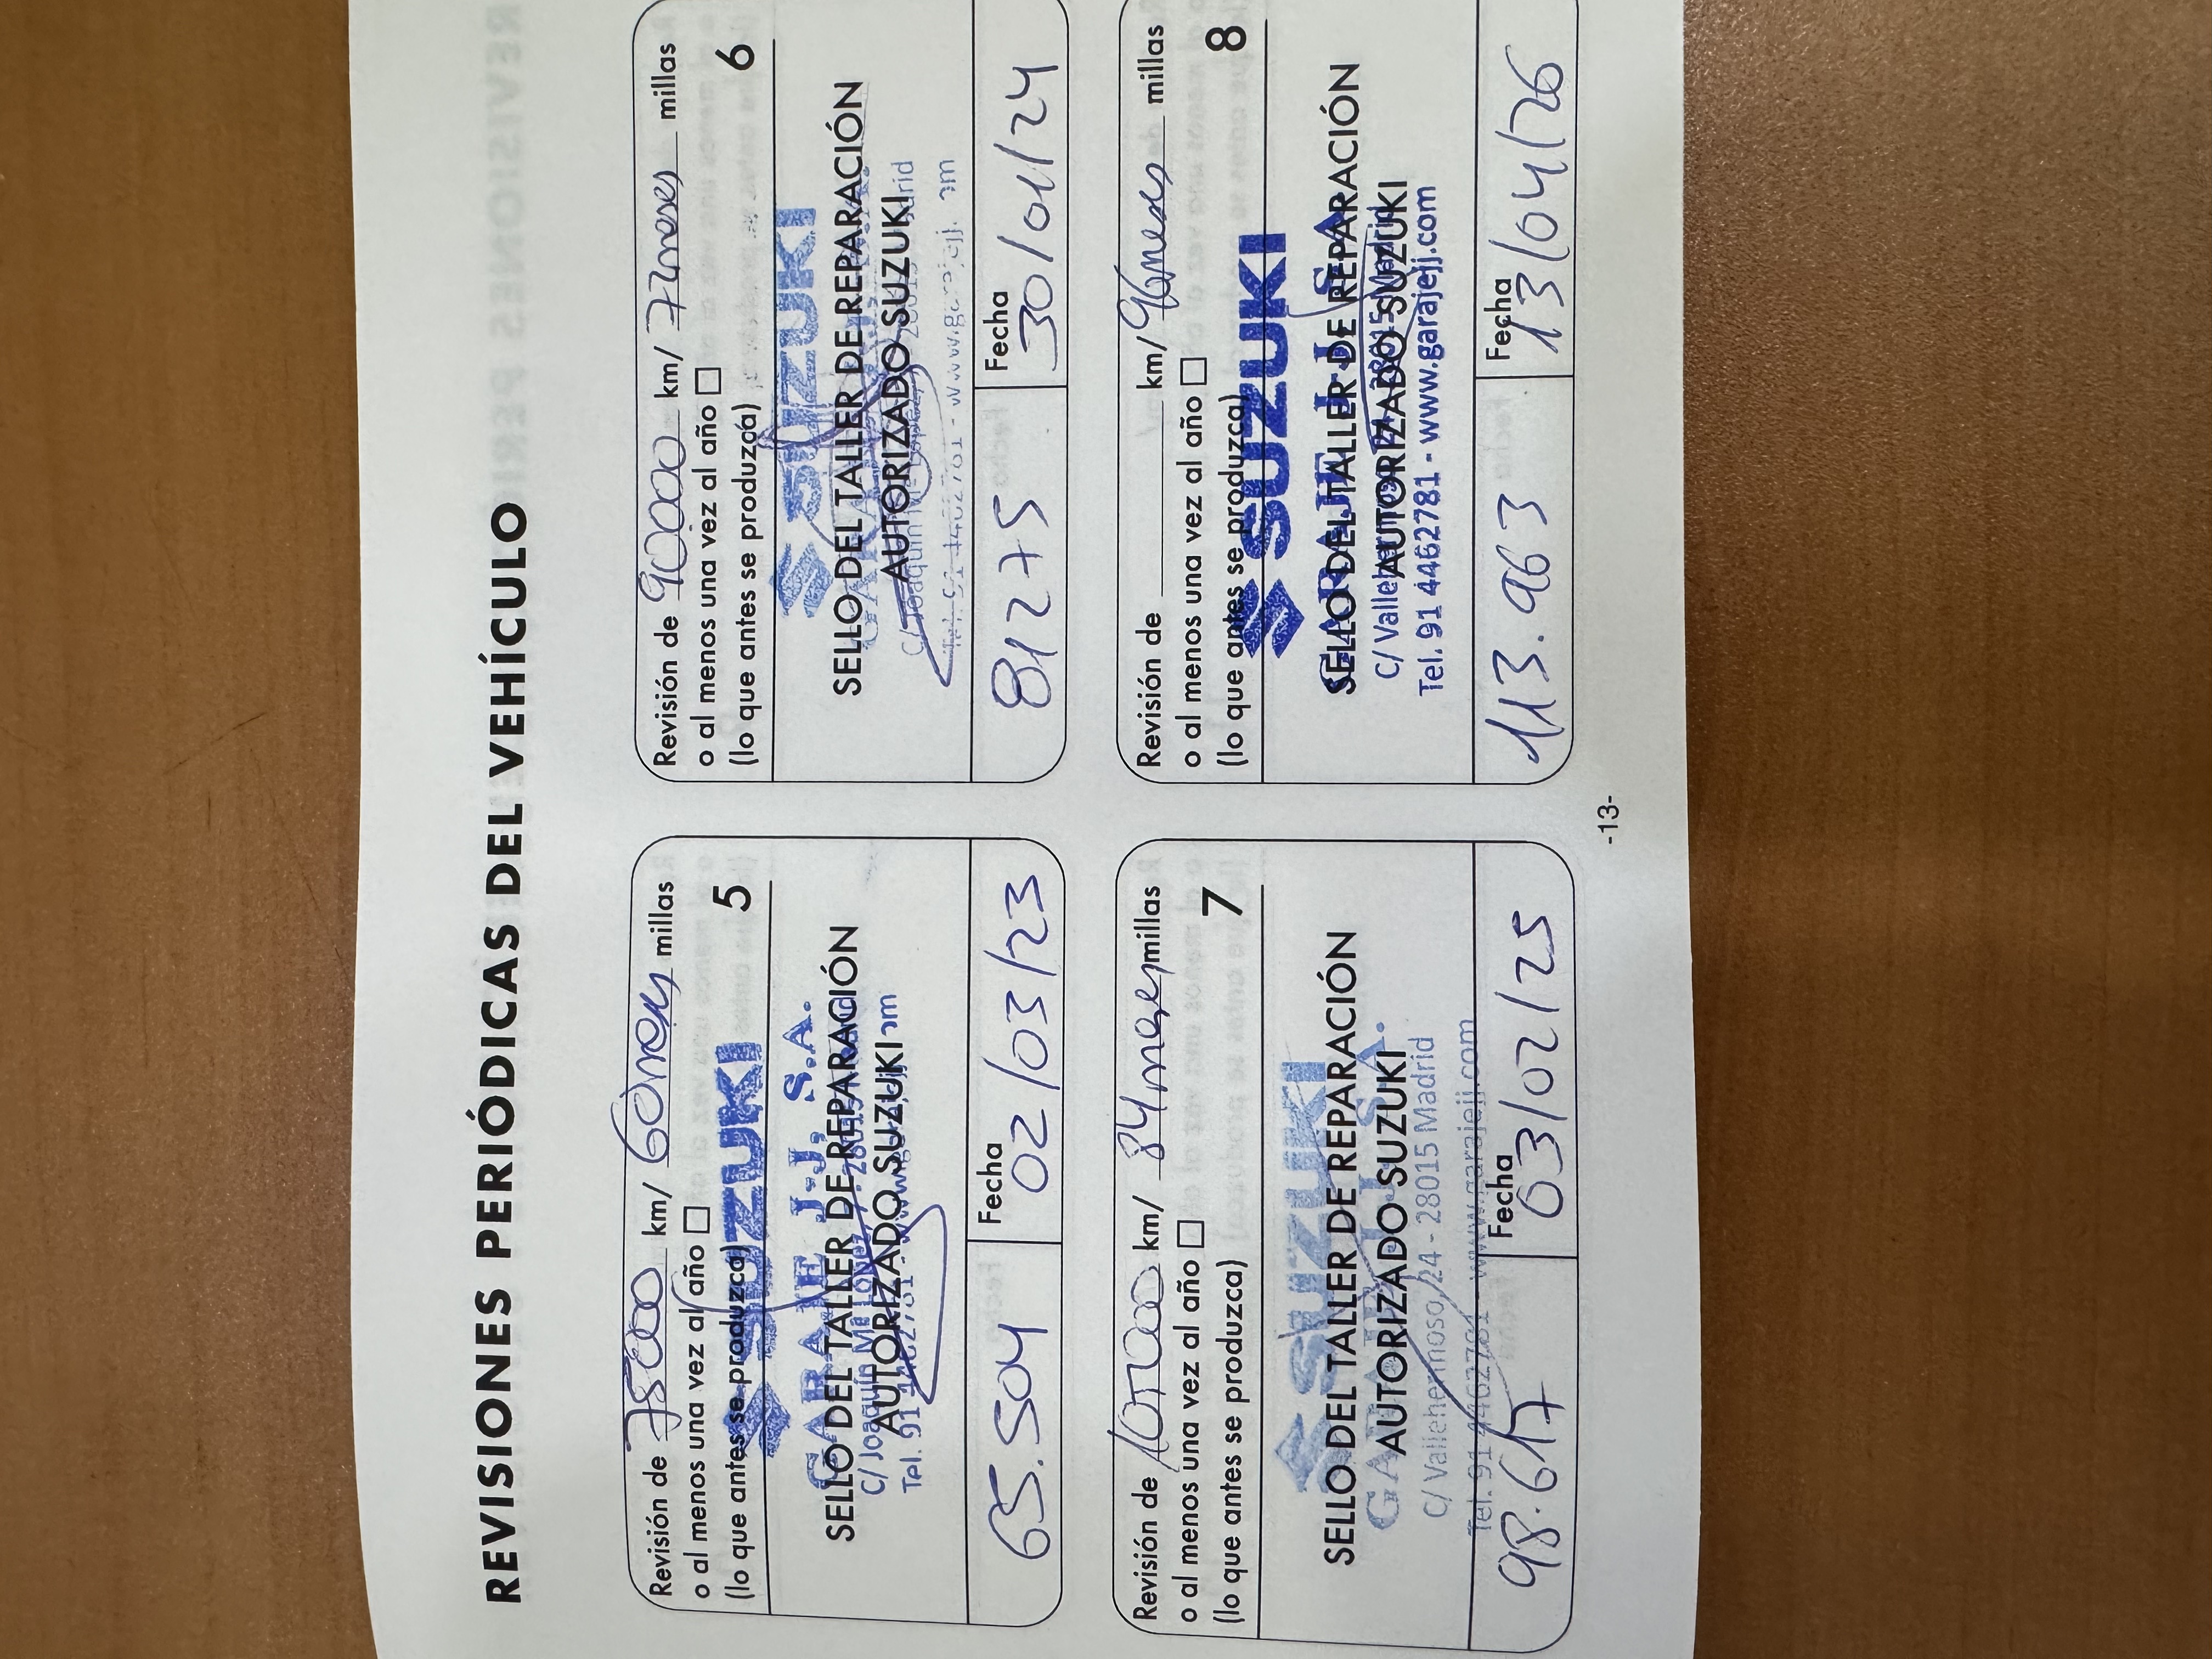 REVISIONES PERIÓDICAS DEL VEHÍCULO
Revisión de 75000 km/ 60 meses millas
o al menos una vez al año 5
(lo que antes se produzca)
SUZUKI
GARAJE J.J. S.A.
SELLO DEL TALLER DE REPARACIÓN
AUTORIZADO SUZUKI
C/ Joaquín
Tel. 91
65.504
Fecha
02/03/23
Revisión de 90000 km/ 72 meses millas
o al menos una vez al año 6
(lo que antes se produzca)
SUZUKI
SELLO DEL TALLER DE REPARACIÓN
AUTORIZADO SUZUKI
C/ Joaquín
81275
Fecha
30/01/24
Revisión de 105000 km/ 84 meses millas
o al menos una vez al año 7
(lo que antes se produzca)
SUZUKI
SELLO DEL TALLER DE REPARACIÓN
AUTORIZADO SUZUKI
C/ Vallehermoso, 24 - 28015 Madrid
Tel. 91 4462781 - www.garajejj.com
98.617
Fecha
03/02/25
Revisión de km/ 96 meses millas
o al menos una vez al año 8
(lo que antes se produzca)
SUZUKI
GARAJE J.J. S.A.
SELLO DEL TALLER DE REPARACIÓN
AUTORIZADO SUZUKI
Tel. 91 4462781 - www.garajejj.com
113.963
Fecha
13/04/26
-13-